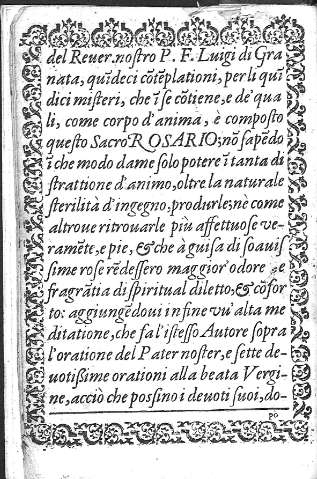 del Reuer.noſtro P. F. Luigi di Gra
nata, quīdeci cōtẽplationi, per li quī
dici miſteri, che ī ſe cōtiene, e de' qua
li, come corpo d'anima, è compoſto
queſto Sacro ROSARIO; nō ſapẽdo
ī che modo da me ſolo potere ī tanta di
ſtrattione d'animo, oltre la naturale
ſterilità d'ingegno, produrle; nè come
altroue ritrouarle più affettuoſe ve-
ramẽte, e pie, & che à guiſa di ſoauiſ
ſime roſe rẽdeſſero maggior' odore e
fragrātia di ſpiritual diletto, & cōfor
to: aggiungẽdoui in fine vn' alta me
ditatione, che fa l'iſteſſo Autore ſopra
l'oratione del Pater noſter, e ſette de-
uotiſſime orationi alla beata Vergi-
ne, acciò che poſſino i deuoti ſuoi, do-
po